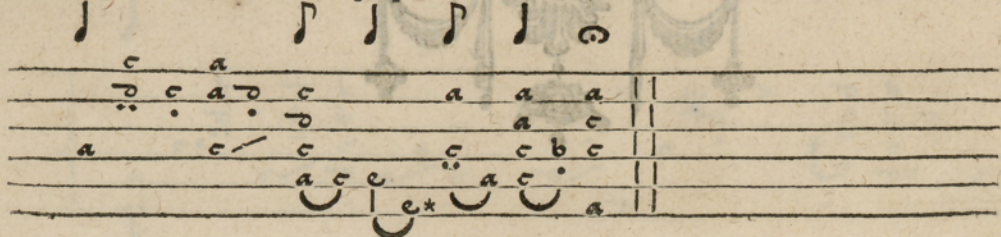 c a
d c a d c a a a
d a c
a c c c c b c
a c e a c
e* a